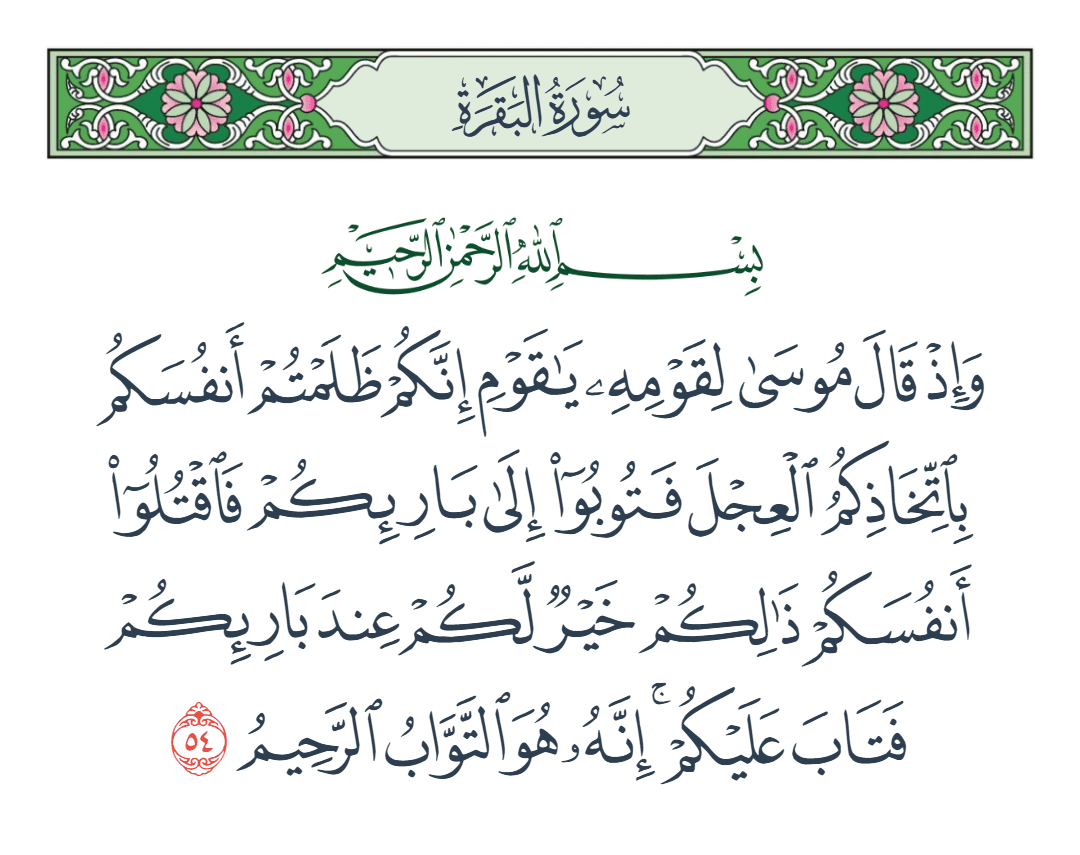 سُورَةُ البَقَرَةِ
بِسْمِ ٱللَّهِ ٱلرَّحْمَٰنِ ٱلرَّحِيمِ
وَإِذْ قَالَ مُوسَىٰ لِقَوْمِهِۦ يَٰقَوْمِ إِنَّكُمْ ظَلَمْتُمْ أَنفُسَكُم
بِٱتِّخَاذِكُمُ ٱلْعِجْلَ فَتُوبُوٓا۟ إِلَىٰ بَارِئِكُمْ فَٱقْتُلُوٓا۟
أَنفُسَكُمْ ذَٰلِكُمْ خَيْرٌ لَّكُمْ عِندَ بَارِئِكُمْ
فَتَابَ عَلَيْكُمْ ۚ إِنَّهُۥ هُوَ ٱلتَّوَّابُ ٱلرَّحِيمُ ٥٤